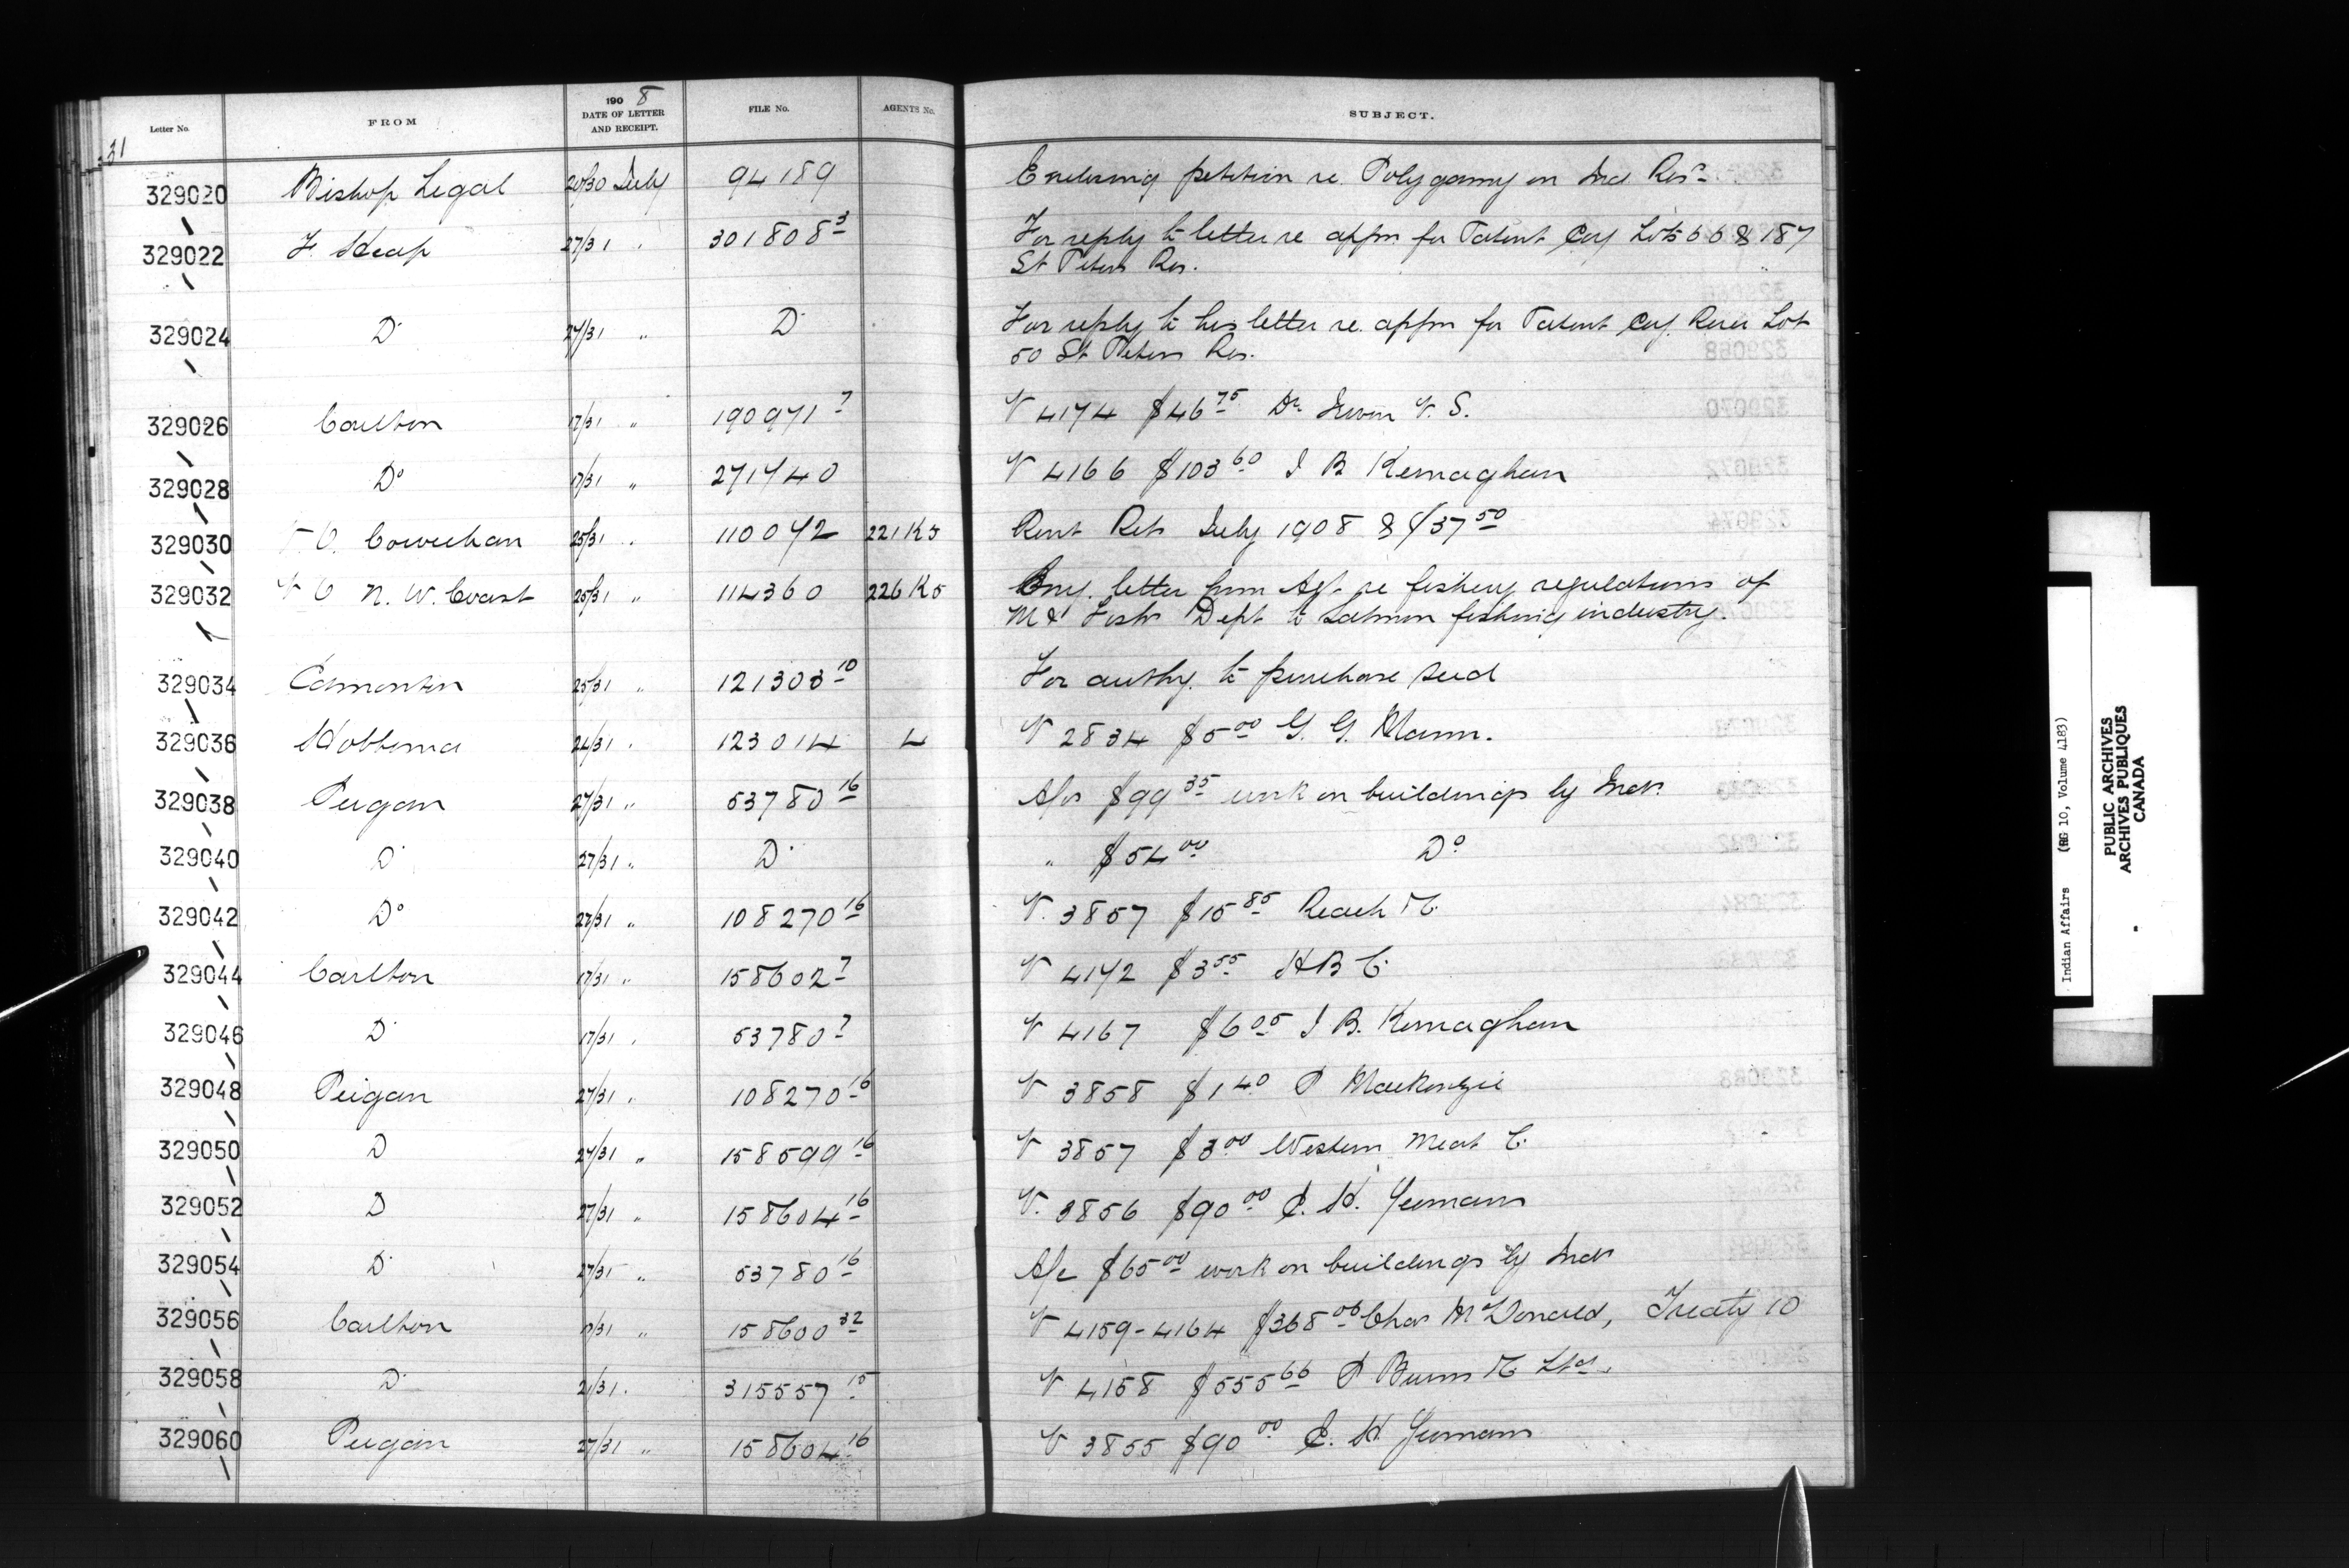 31
Letter No. FROM 190 8 DATE OF LETTER AND RECEIPT. FILE No. AGENTS No. SUBJECT.
329020 Bishop Legal 20/30 July 94189 Enclosing petition re. Polygamy on Ind. Res.
329022 F Heap 27/31 " 301808 3 For reply to letter re appn for Patent Cov Lots 66 & 187
St Peters Res.
329024 Do 27/31 " Do For reply to his letter re. appn for Patent Cov. River Lot
50 St Peters Res.
329026 Carlton 17/31 " 190971 7 V 4174 $46 75 Dr. Irwin V. S.
329028 Do 17/31 " 271740 V 4166 $103 60 J B Kernaghan
329030 V. O. Cowichan 25/31 " 110072 221 K5 Rent Ret July 1908 & $37 50
329032 V O N. W. Coast 25/31 " 114360 226 K5 Enc. letter from Agt. re fishery regulations of
M & Fish Dept to salmon fishing industry.
329034 Edmonton 25/31 " 121303 10 For authy. to purchase seed
329036 Hobbema 24/31 " 123014 4 V 2834 $5 00 G. G. Mann.
329038 Peigan 27/31 " 53780 16 A/c $99 35 work on buildings by Inds
329040 Do 27/31 " Do " $54 00 Do
329042 Do 27/31 " 108270 16 V. 3857 $15 85 Reach Co
329044 Carlton 17/31 " 158602 7 V 4172 $3 55 H B C.
329046 Do 17/31 " 53780 7 V 4167 $6 05 J B. Kernaghan
329048 Peigan 27/31 " 108270 16 V 3858 $1 40 P MacKenzie
329050 D 27/31 " 158599 16 V 3857 $3 00 Western Meat C.
329052 D 27/31 " 158604 16 V. 3856 $90 00 E. H. Yeomans
329054 Do 27/31 " 53780 16 A/c $65 00 work on buildings by Inds
329056 Carlton 17/31 " 158600 32 V 4159-4164 $368 06 Chas McDonald, Treaty 10
329058 Do 21/31 " 315557 15 V 4158 $555 66 P Burns & Co Ltd.
329060 Peigan 27/31 " 158604 16 V 3855 $90 00 E. H. Yeomans
Indian Affairs (RG 10, Volume 4183)
PUBLIC ARCHIVES
ARCHIVES PUBLIQUES
CANADA